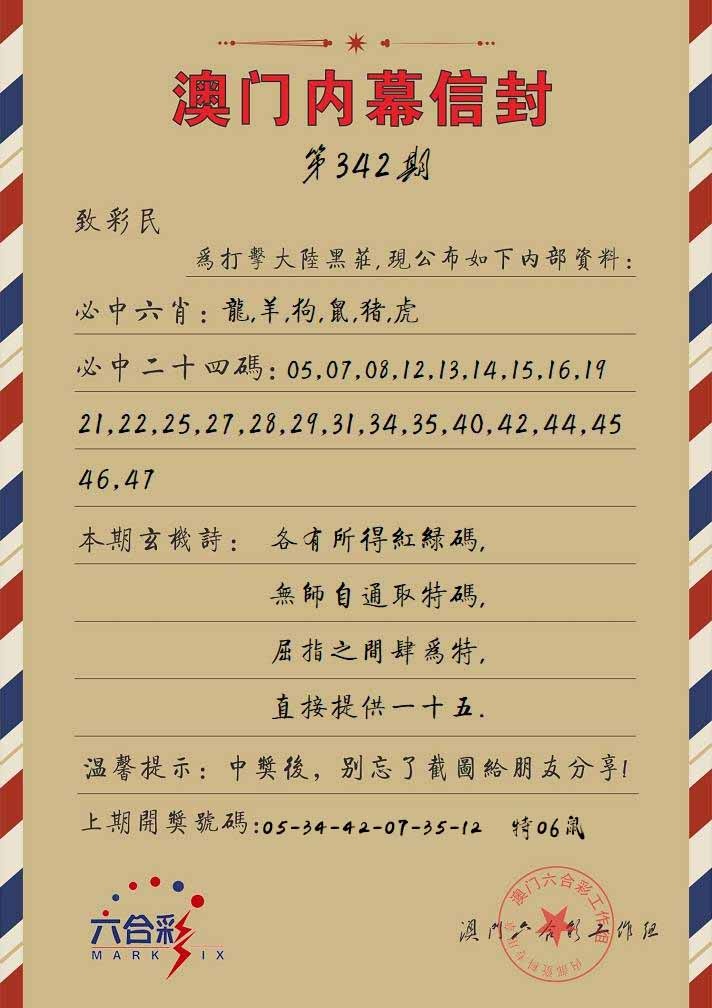 澳门内幕信封
第342期
致彩民
爲打擊大陸黑莊,現公布如下內部資料:
必中六肖:龍,羊,狗,鼠,猪,虎
必中二十四碼:05,07,08,12,13,14,15,16,19
21,22,25,27,28,29,31,34,35,40,42,44,45
46,47
本期玄機詩: 各有所得紅緑碼,
無師自通取特碼,
屈指之間肆爲特,
直接提供一十五.
温馨提示:中獎後,别忘了截圖給朋友分享!
上期開獎號碼:05-34-42-07-35-12 特06鼠
六合彩
MARK SIX
澳门六合彩工作组
澳门六合彩工作组
内部资料专用章